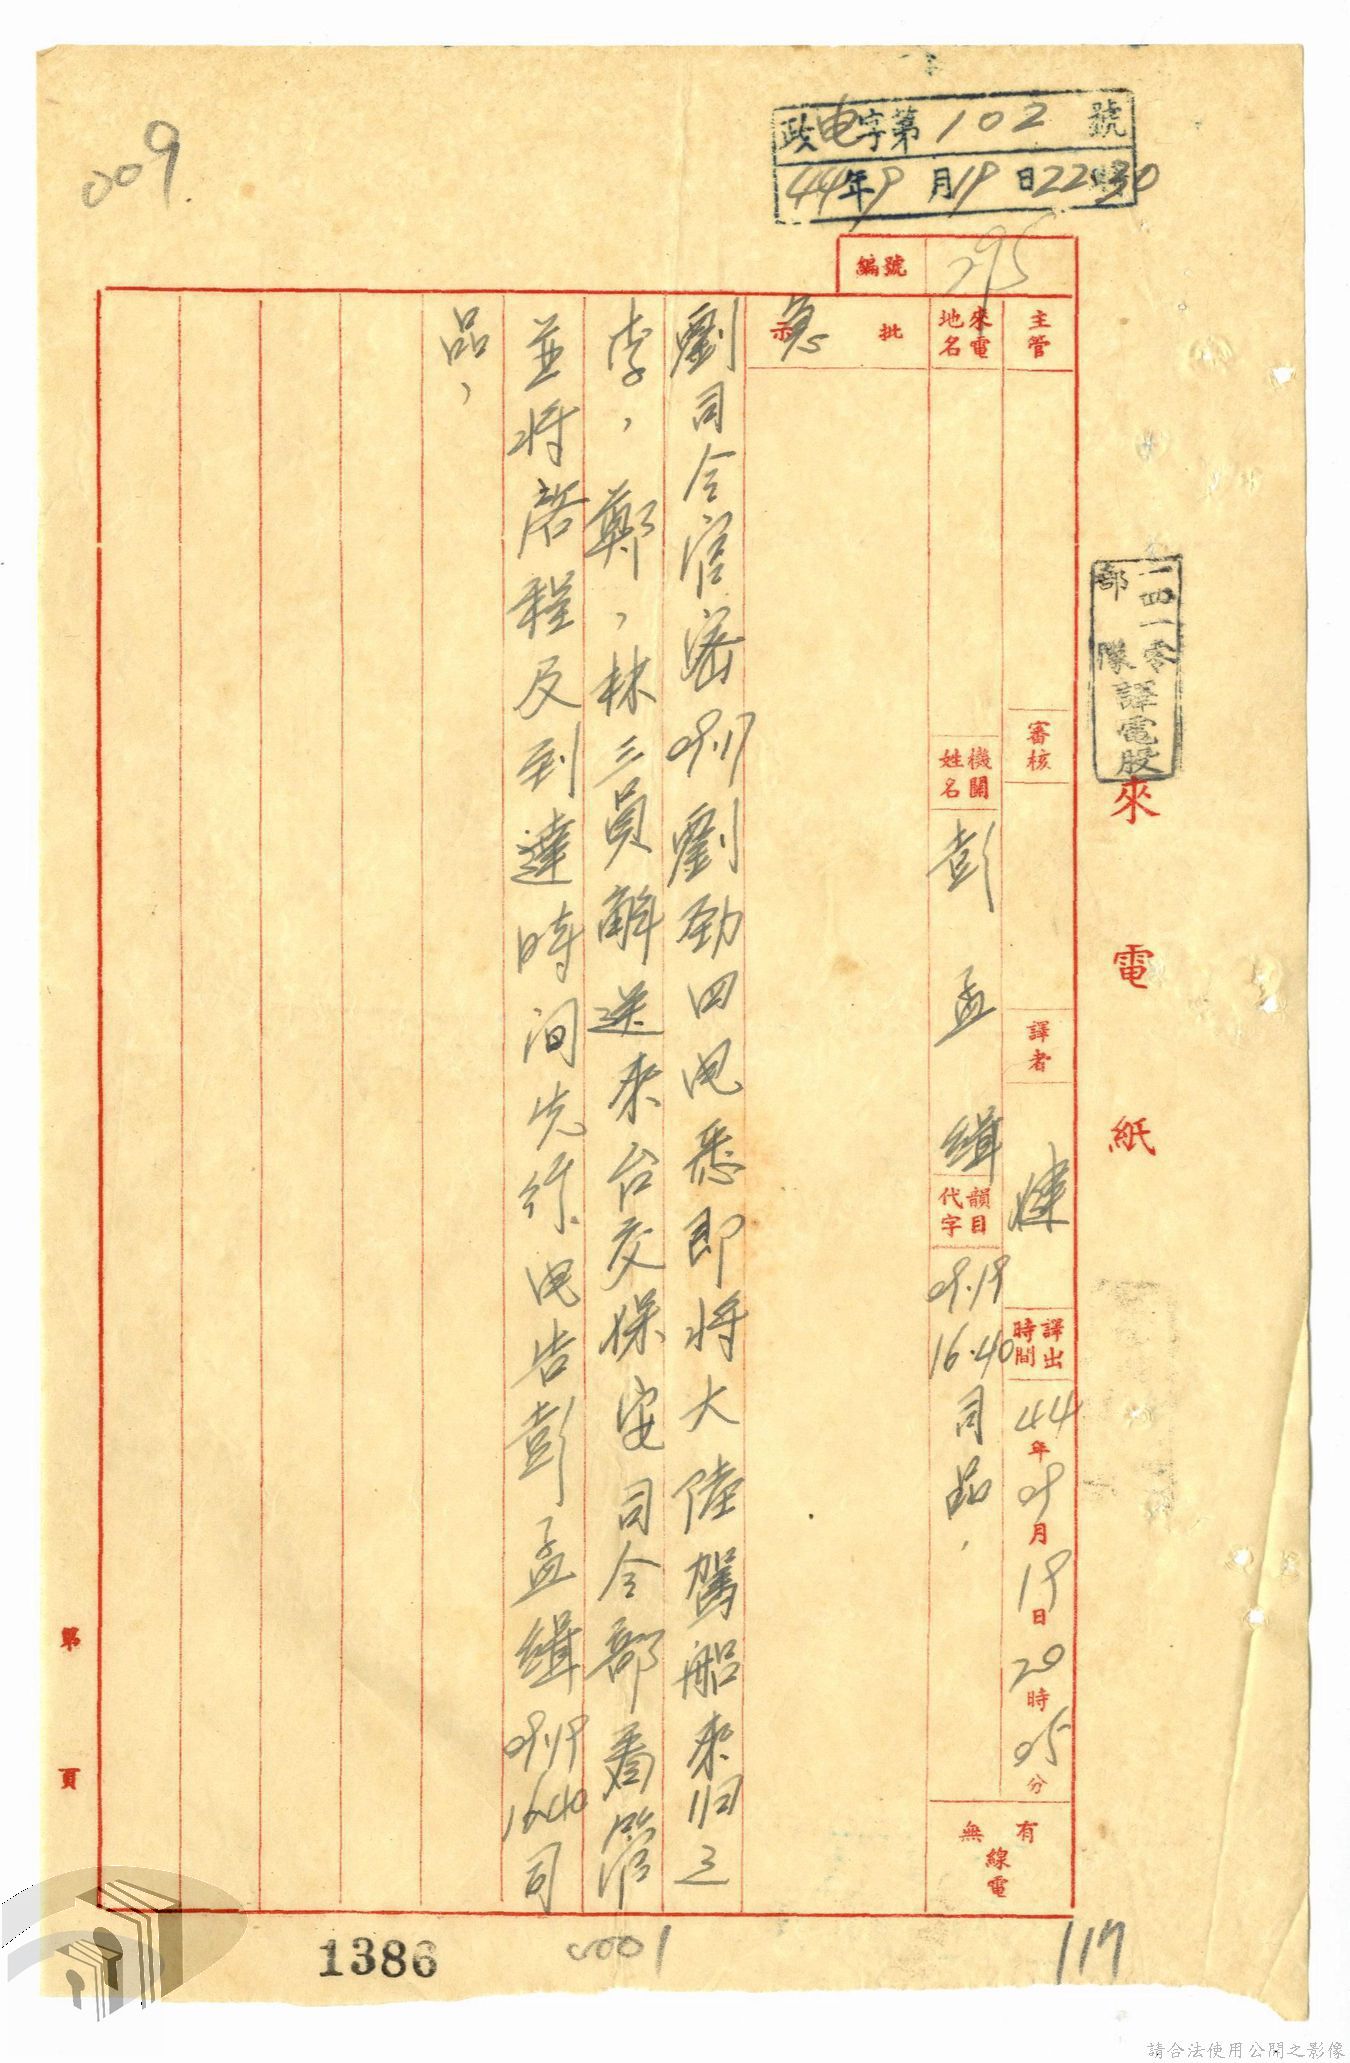 009
政电字第102號
44年9月19日22時30
編號 295
一四一零
部隊
譯電股
來電紙
主管
審核
譯者
譯出時間 44年09月19日20時05分
來電地名
機關姓名 彭孟緝
韻目代字 09.19 16.40 司品、
有無線電
批示
急
劉司令官密09.17劉勁四电悉即將大陸駕船來归之
李、鄭、林三員解送來台交保安司令部看管
並将啓程及到達時间先行电告彭孟緝09.19 16.40司
品、
第 頁
1386
0001
117
請合法使用公開之影像